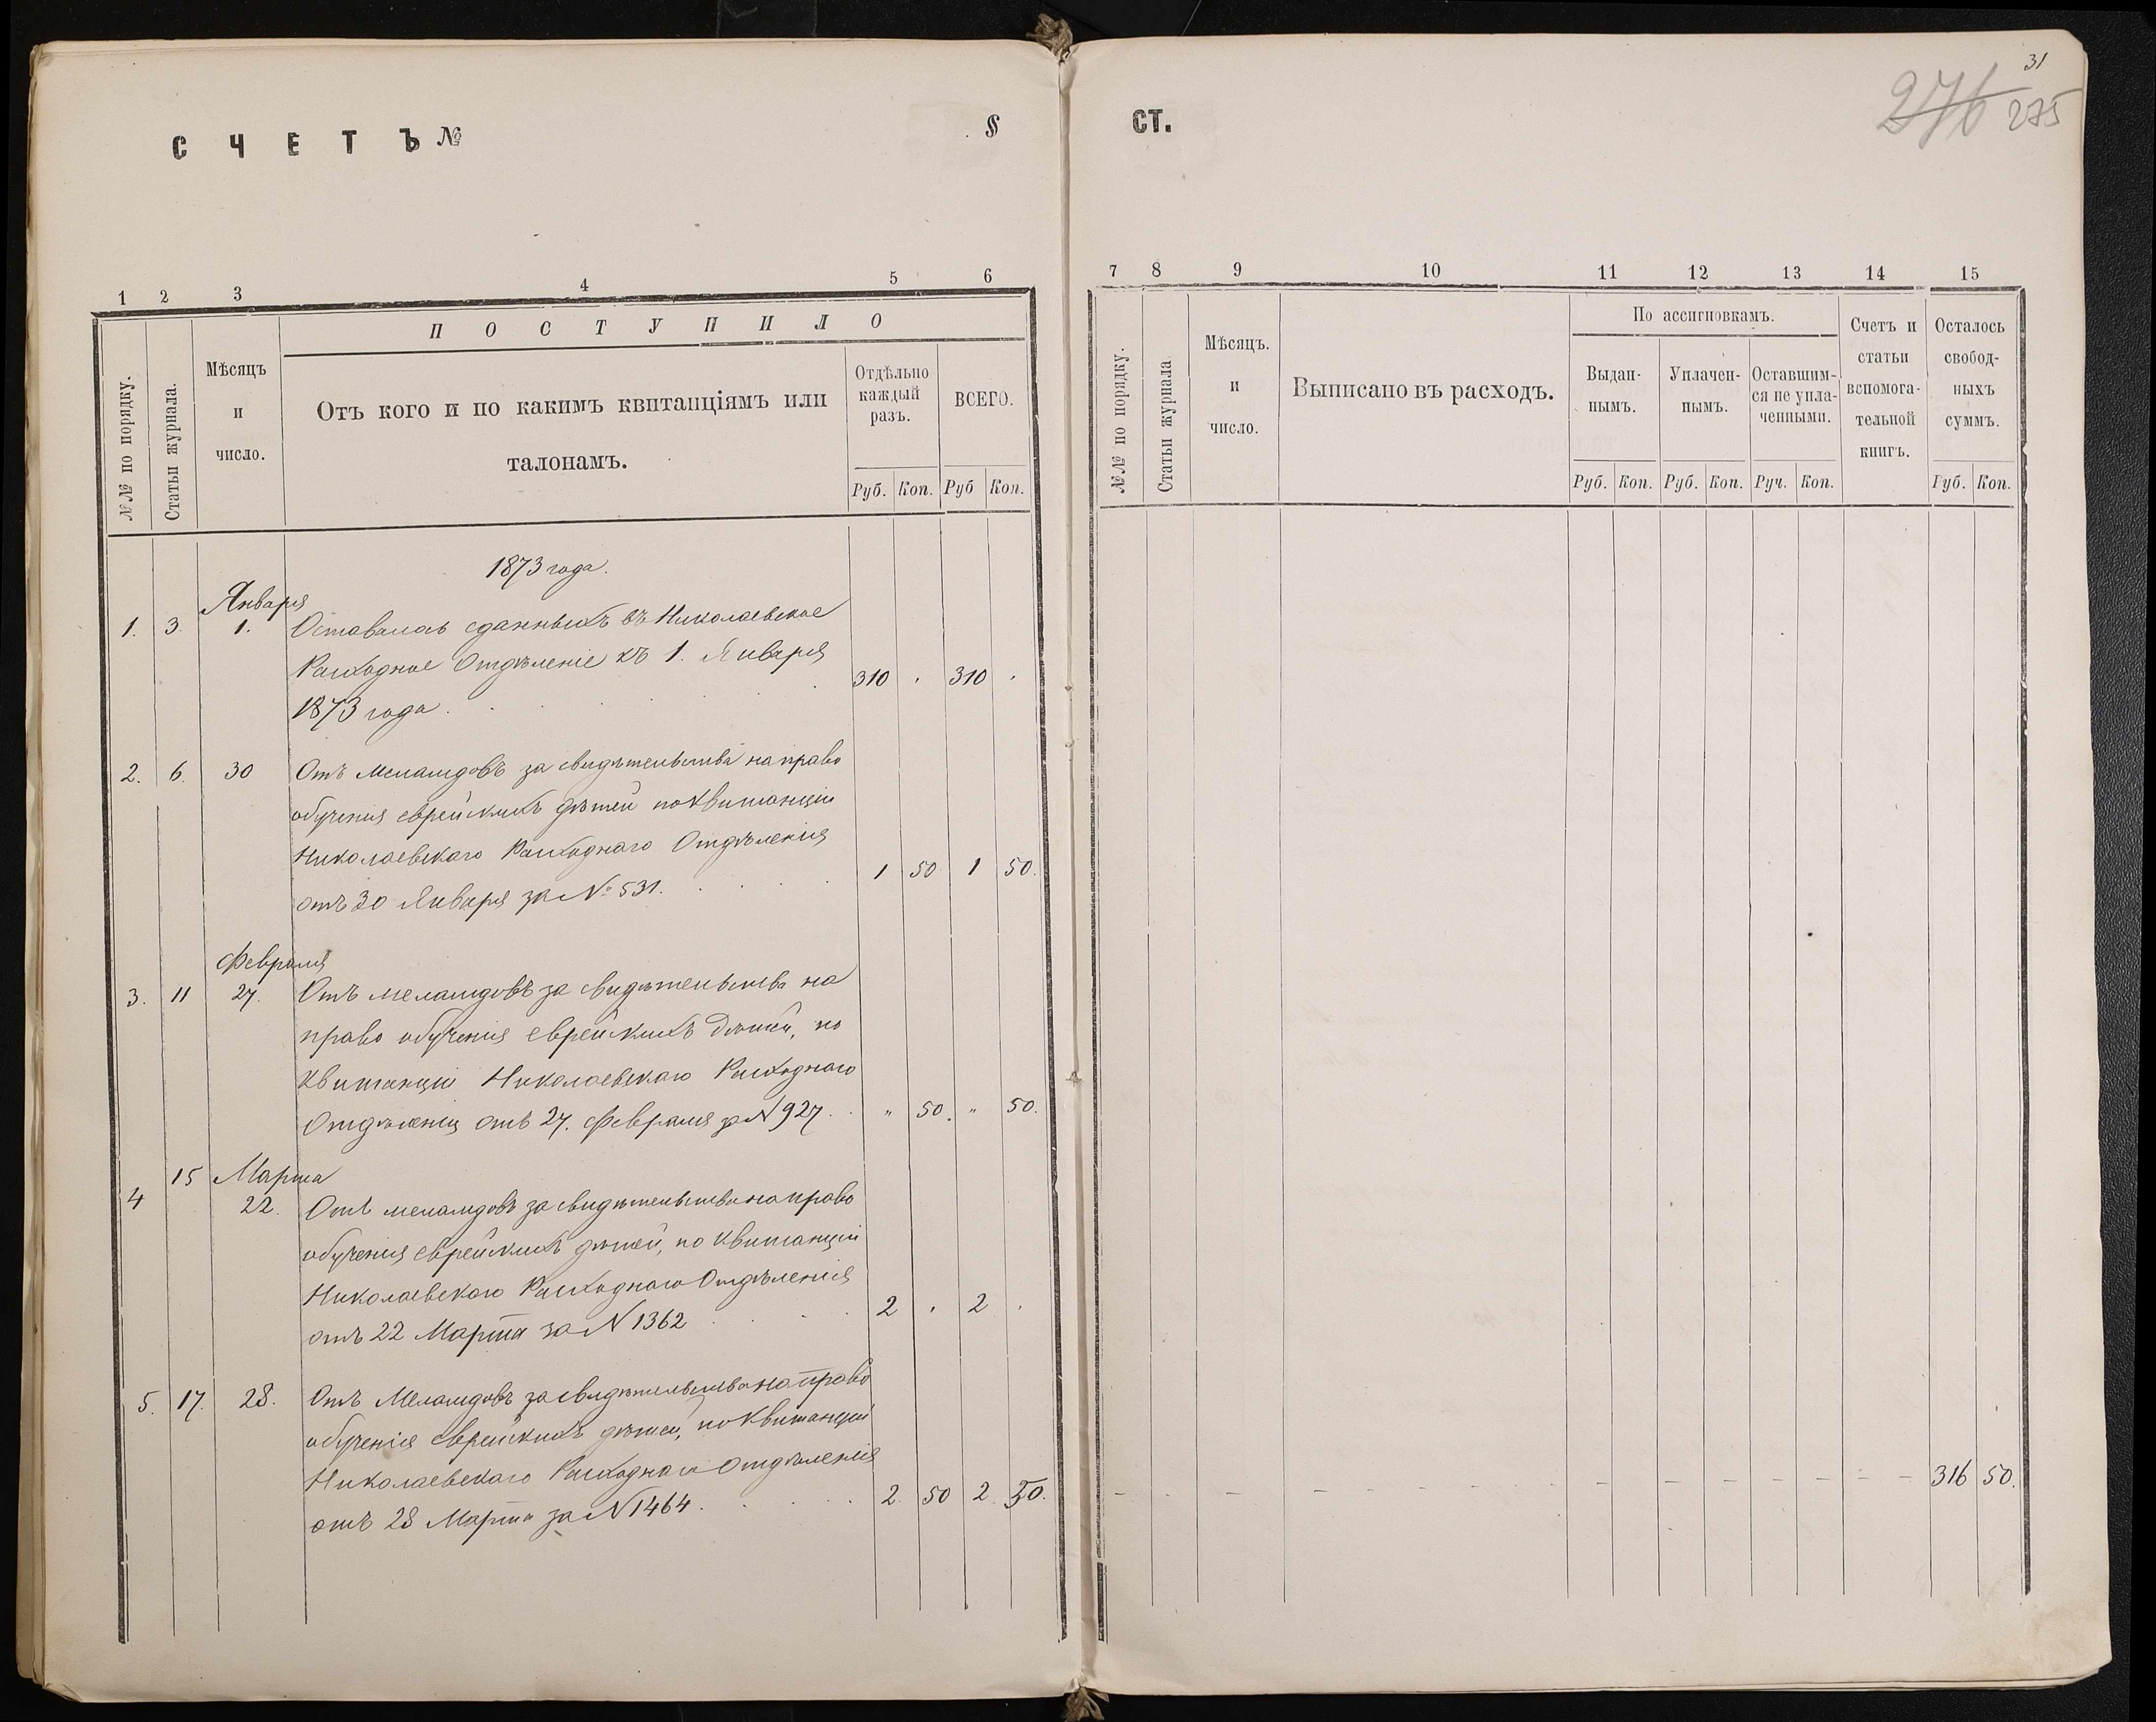 31
276 275
СЧЕТЪ № § СТ.
1 2 3 4 5 6
7 8 9 10 11 12 13 14 15
№№ по порядку.
Статьи журнала.
Мѣсяцъ
и
число.
ПОСТУПИЛО
Отъ кого и по какимъ квитанціямъ или
талонамъ.
Отдѣльно
каждый
разъ.
ВСЕГО.
Руб. Коп. Руб Коп.
№№ по порядку.
Статьи журнала
Мѣсяцъ.
и
число.
Выписано въ расходъ.
По ассигновкамъ.
Выдан-
нымъ.
Уплачен-
нымъ.
Оставшим-
ся не упла-
ченными.
Счетъ и
статьи
вспомога-
тельной
книгъ.
Осталось
свобод-
ныхъ
суммъ.
Руб. Коп. Руб. Коп. Руч. Коп. Руб. Коп.
1873 года.
Января
1. 3. 1. Оставалась сданныхъ въ Николаевское
Расходное Отдѣленіе къ 1. Января
1873 года. 310 . 310 .
2. 6. 30 Отъ Меламдовъ за свидѣтельства на право
обученія еврейскихъ дѣтей по квитанціи
Николаевскаго Расходнаго Отдѣленія
отъ 30 Января за № 531. 1 50 1 50.
Февраля
3. 11 27. Отъ меламдовъ за свидѣтельства на
право обученія еврейскихъ дѣтей, по
квитанціи Николаевскаго Расходнаго
Отдѣленія отъ 27. Февраля за N 927. " 50. " 50.
15 Марта
4 22. Отъ меламдовъ за свидѣтельства на право
обученія еврейскихъ дѣтей, по квитанціи
Николаевскаго Расходнаго Отдѣленія
отъ 22 Марта за N 1362 2 . 2 .
5. 17. 28. Отъ Меламдовъ за свидѣтельства на право
обученія еврейскихъ дѣтей, по квитанціи
Николаевскаго Расходнаго Отдѣленія
отъ 28 Марта за N 1464. 2. 50 2 50. 316 50.